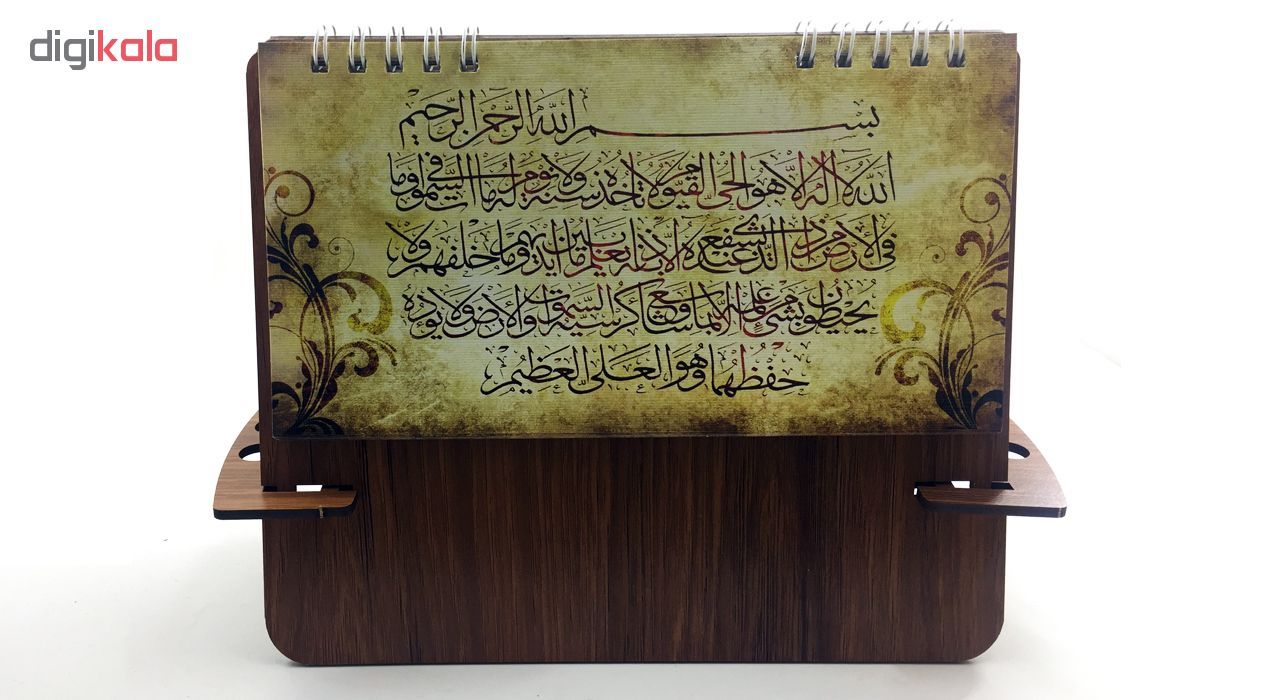 digikala
بسم الله الرحمن الرحيم
الله لا اله الا هو الحي القيوم لا تأخذه سنة ولا نوم له ما في السموات وما
في الأرض من ذا الذي يشفع عنده الا باذنه يعلم ما بين ايديهم وما خلفهم ولا
يحيطون بشيء من علمه الا بما شاء وسع كرسيه السموات والأرض ولا يؤده
حفظهما وهو العلي العظيم